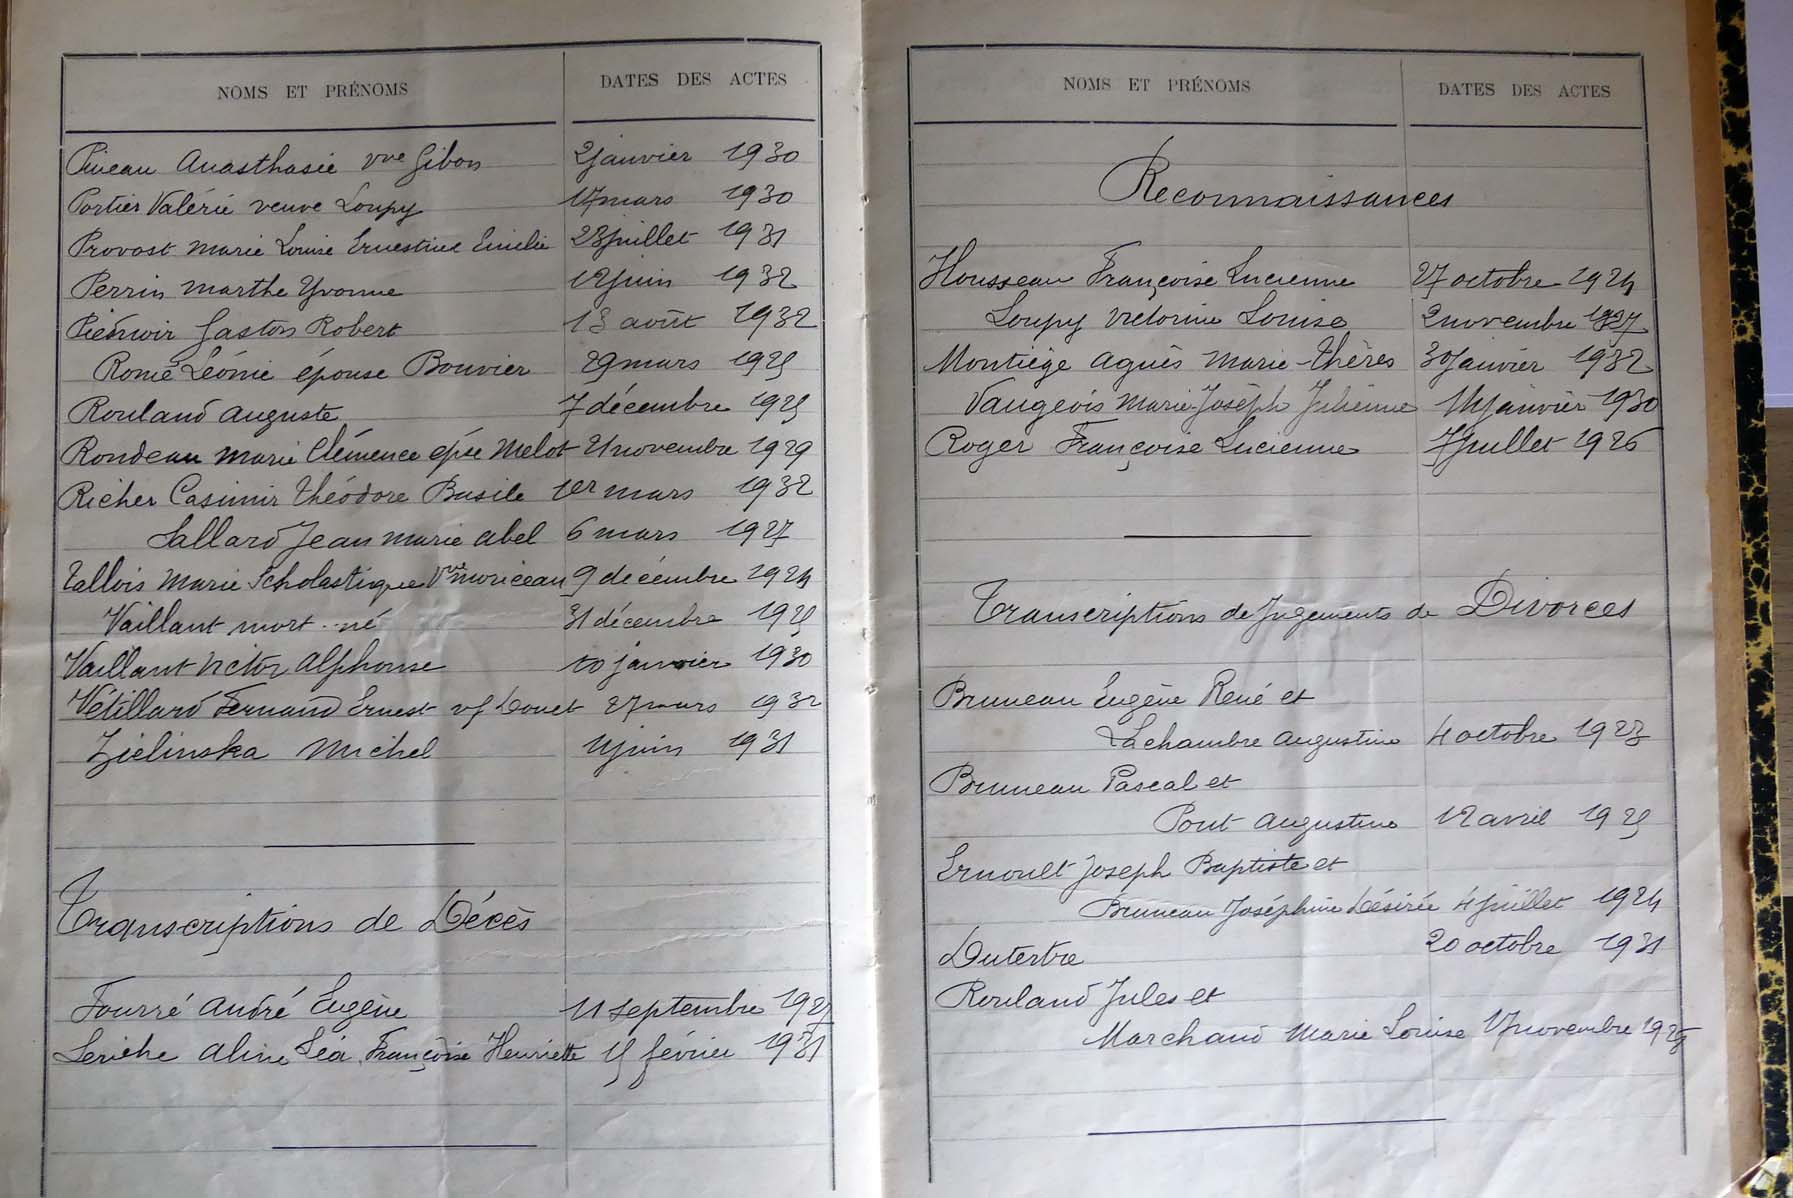 NOMS ET PRÉNOMS DATES DES ACTES
Pineau Anasthasie vve Gibon 2 janvier 1930
Portier Valérie veuve Loupy 17 mars 1930
Provost Marie Louise Ernestine Emilie 23 juillet 1931
Perrin Marthe Yvonne 12 juin 1932
Piednoir Gaston Robert 13 août 1932
Romé Léonie épouse Bouvier 29 mars 1925
Rouland Auguste 7 décembre 1925
Rondeau Marie Clémence épse Melot 21 novembre 1929
Richer Casimir Théodore Basile 1er mars 1932
Sallard Jean Marie Abel 6 mars 1927
Tallois Marie Scholastique Vve Moriceau 9 décembre 1924
Vaillant mort-né 31 décembre 1925
Vaillant Victor Alphonse 10 janvier 1930
Vétillard Fernand Ernest vf Douet 27 mars 1932
Zielinska Michel 11 juin 1931
Transcriptions de Décès
Fourré André Eugène 11 septembre
Leriche Aline Léa Françoise Henriette 15 février 1931
NOMS ET PRÉNOMS DATES DES ACTES
Reconnaissances
Housseau Françoise Lucienne 27 octobre 1924
Loupy Victorine Louise 2 novembre 1927
Montiége Agnès Marie-Thères 30 janvier 1932
Vaugeois Marie Joséph Julienne 14 janvier 1930
Roger Françoise Lucienne 7 juillet 1926
Transcriptions de Jugements de Divorces
Bruneau Eugène René et
Lachambre Augustine 4 octobre 1923
Bruneau Pascal et
Pont Augustine 12 avril 1925
Ernoult Joseph Baptiste et
Bruneau Joséphine Désirée 4 juillet 1924
Dutertre 20 octobre 1931
Rouland Jules et
Marchand Marie Louise 17 novembre